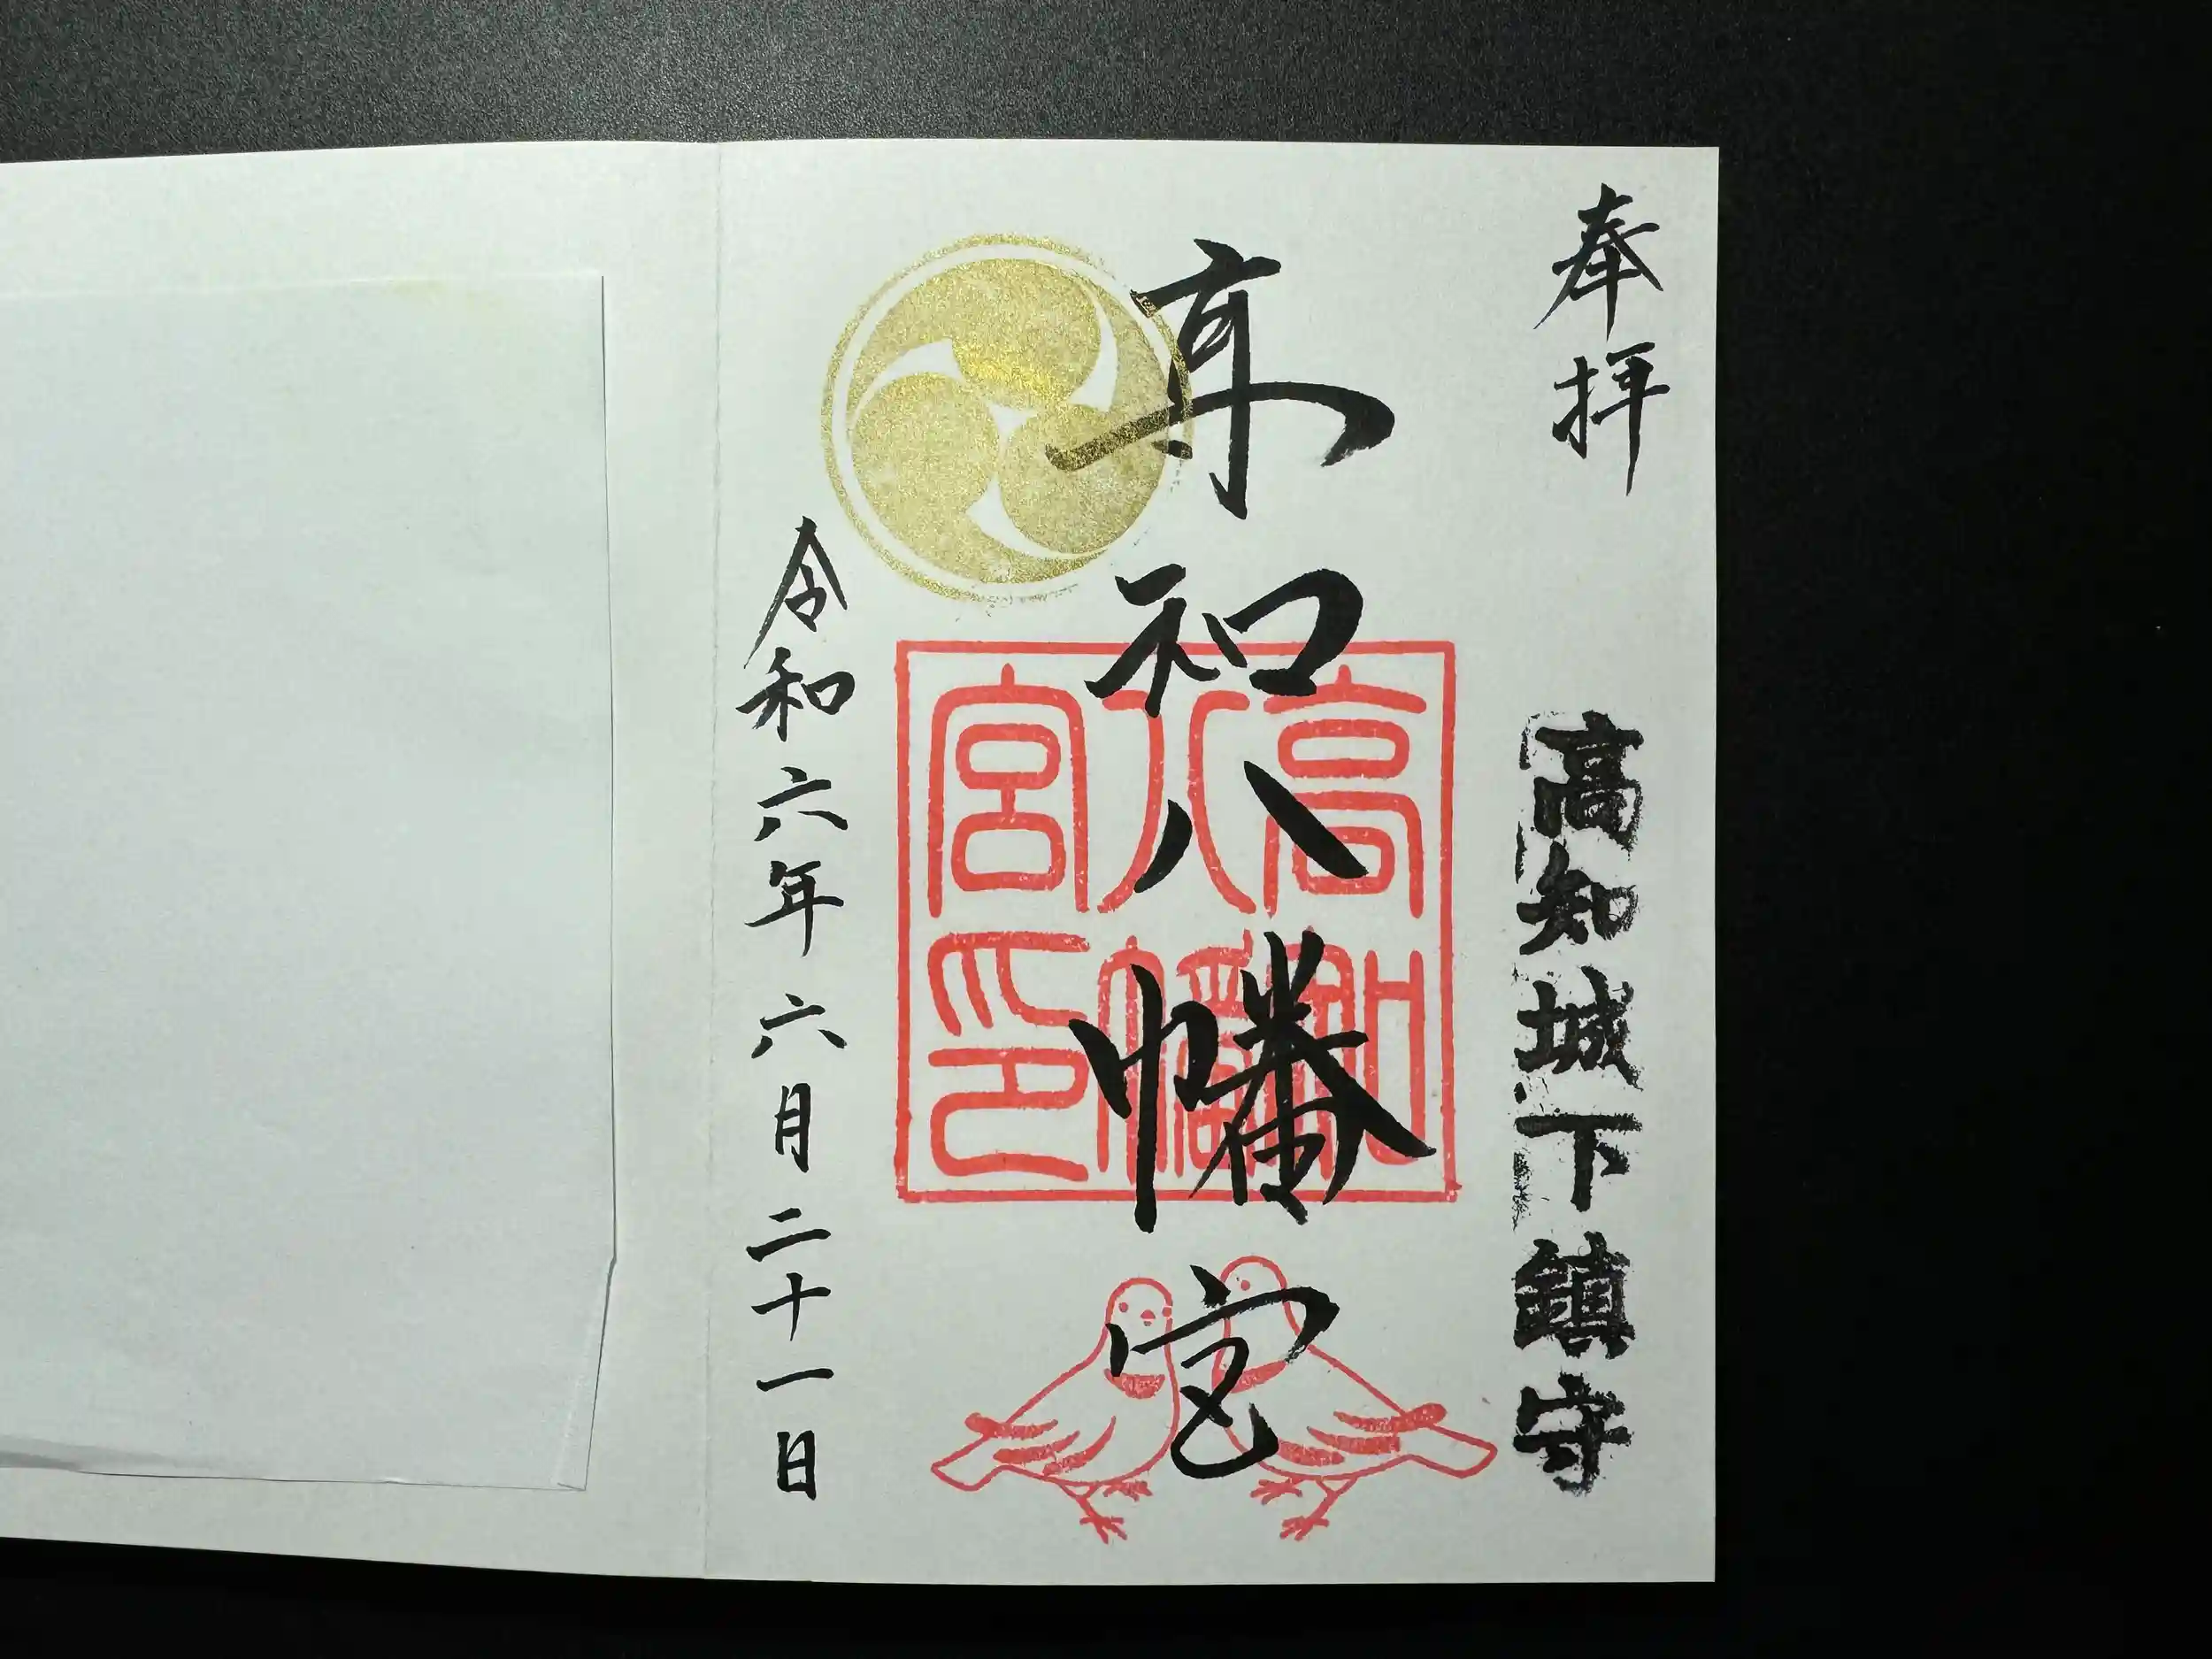 奉拝
高知城下鎮守
高知八幡宮
高知
八幡
宮印
令和六年六月二十一日